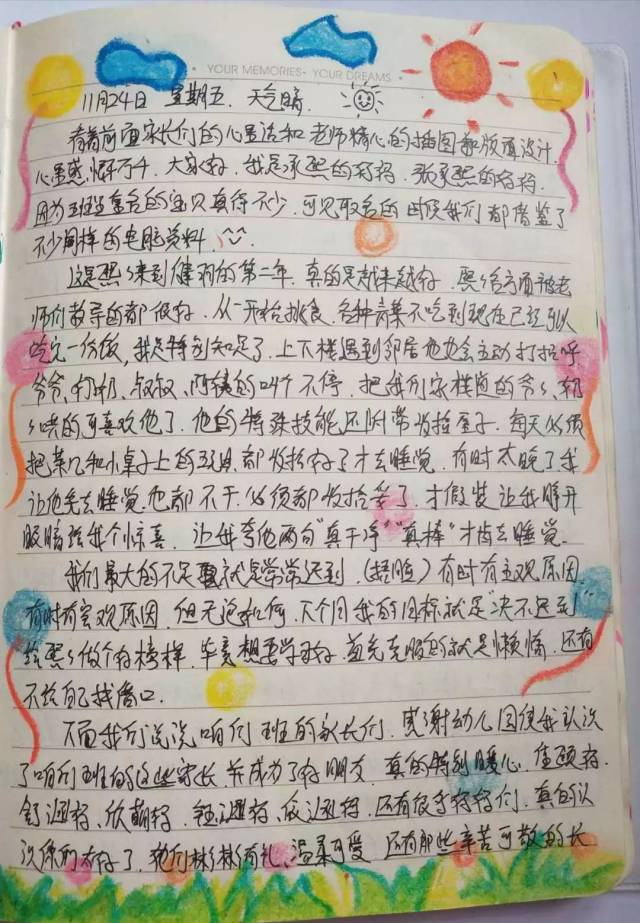 YOUR MEMORIES· YOUR DREAMS
11月24日 星期五. 天气晴.
看着前面家长们的心里话和老师精心的插图和版面设计.
心里感慨万千. 大家好. 我是承熙的妈妈. 张承熙的妈妈.
因为班里重名的宝贝真得不少. 可见取名的时候我们都借鉴了
不少同样的电脑资料.
这是熙熙来到健明的第二年. 真的是越来越好. 熙熙各方面被老
师们教导的都很好. 从一开始挑食. 各种青菜不吃到现在已经可以
吃完一份饭, 我是特别知足了. 上下楼遇到邻居他也会主动打招呼
爷爷、奶奶、叔叔、阿姨的叫个不停. 把我们家楼道的爷爷、奶
奶哄的可喜欢他了. 他的特殊技能还附带收拾屋子. 每天必须
把茶几和小桌子上的玩具都收拾好了才去睡觉. 有时太晚了我
让他先去睡觉. 他都不干. 必须都收拾等了. 才假装让我睁开
眼睛给我个惊喜. 让我夸他两句“真干净”“真棒”才肯去睡觉.
我们最大的不足就是常常迟到. (捂脸) 有时有主观原因.
有时有客观原因. 但无论如何. 下个月我的目标就是“决不迟到”
给熙熙做个好榜样. 毕竟想要学习好. 首先克服的就是懒惰. 还有
不给自己找借口.
下面我们说说咱们班的家长们. 感谢幼儿园使我认识
了咱们班的这些家长并成为了好朋友. 真的特别暖心. 佳颐妈.
舒涵妈、欣萌妈. 钰涵妈、依诺妈. 还有很多妈妈们. 真的认
识你们太好了. 她们彬彬有礼、温柔可爱. 还有那些辛苦可敬的长